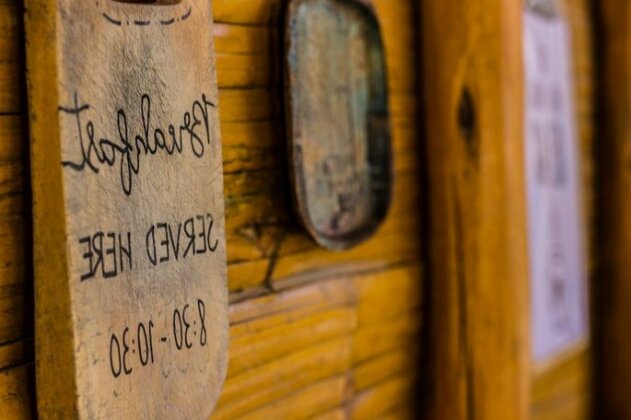 Breakfast
SERVED HERE
8:30-10:30